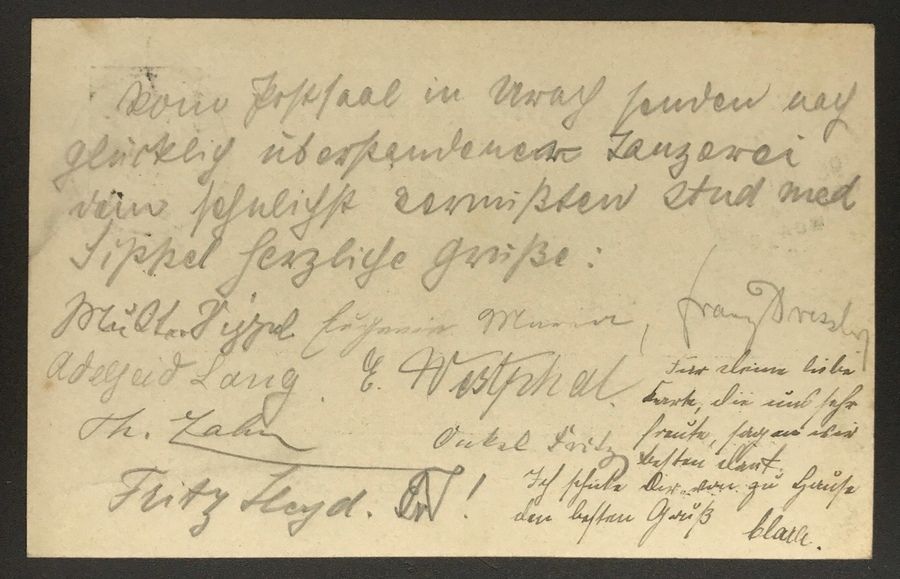 Vom Postsaal in Urach senden nach
glücklich überstandener Tanzerei
dem sehnlichst vermißten stud med
Sippel herzliche Grüße:
Mutter Sippel Eugenie Maria, Franz Drescher
Adelheid Lang. E. Westphal.
Th. Zahn
Onkel Fritz
Fritz
Für deine liebe
Karte, die uns sehr
freute, sagen wir
besten Dank.
Ich schicke Dir von zu Hause
den besten Gruß
Clara.